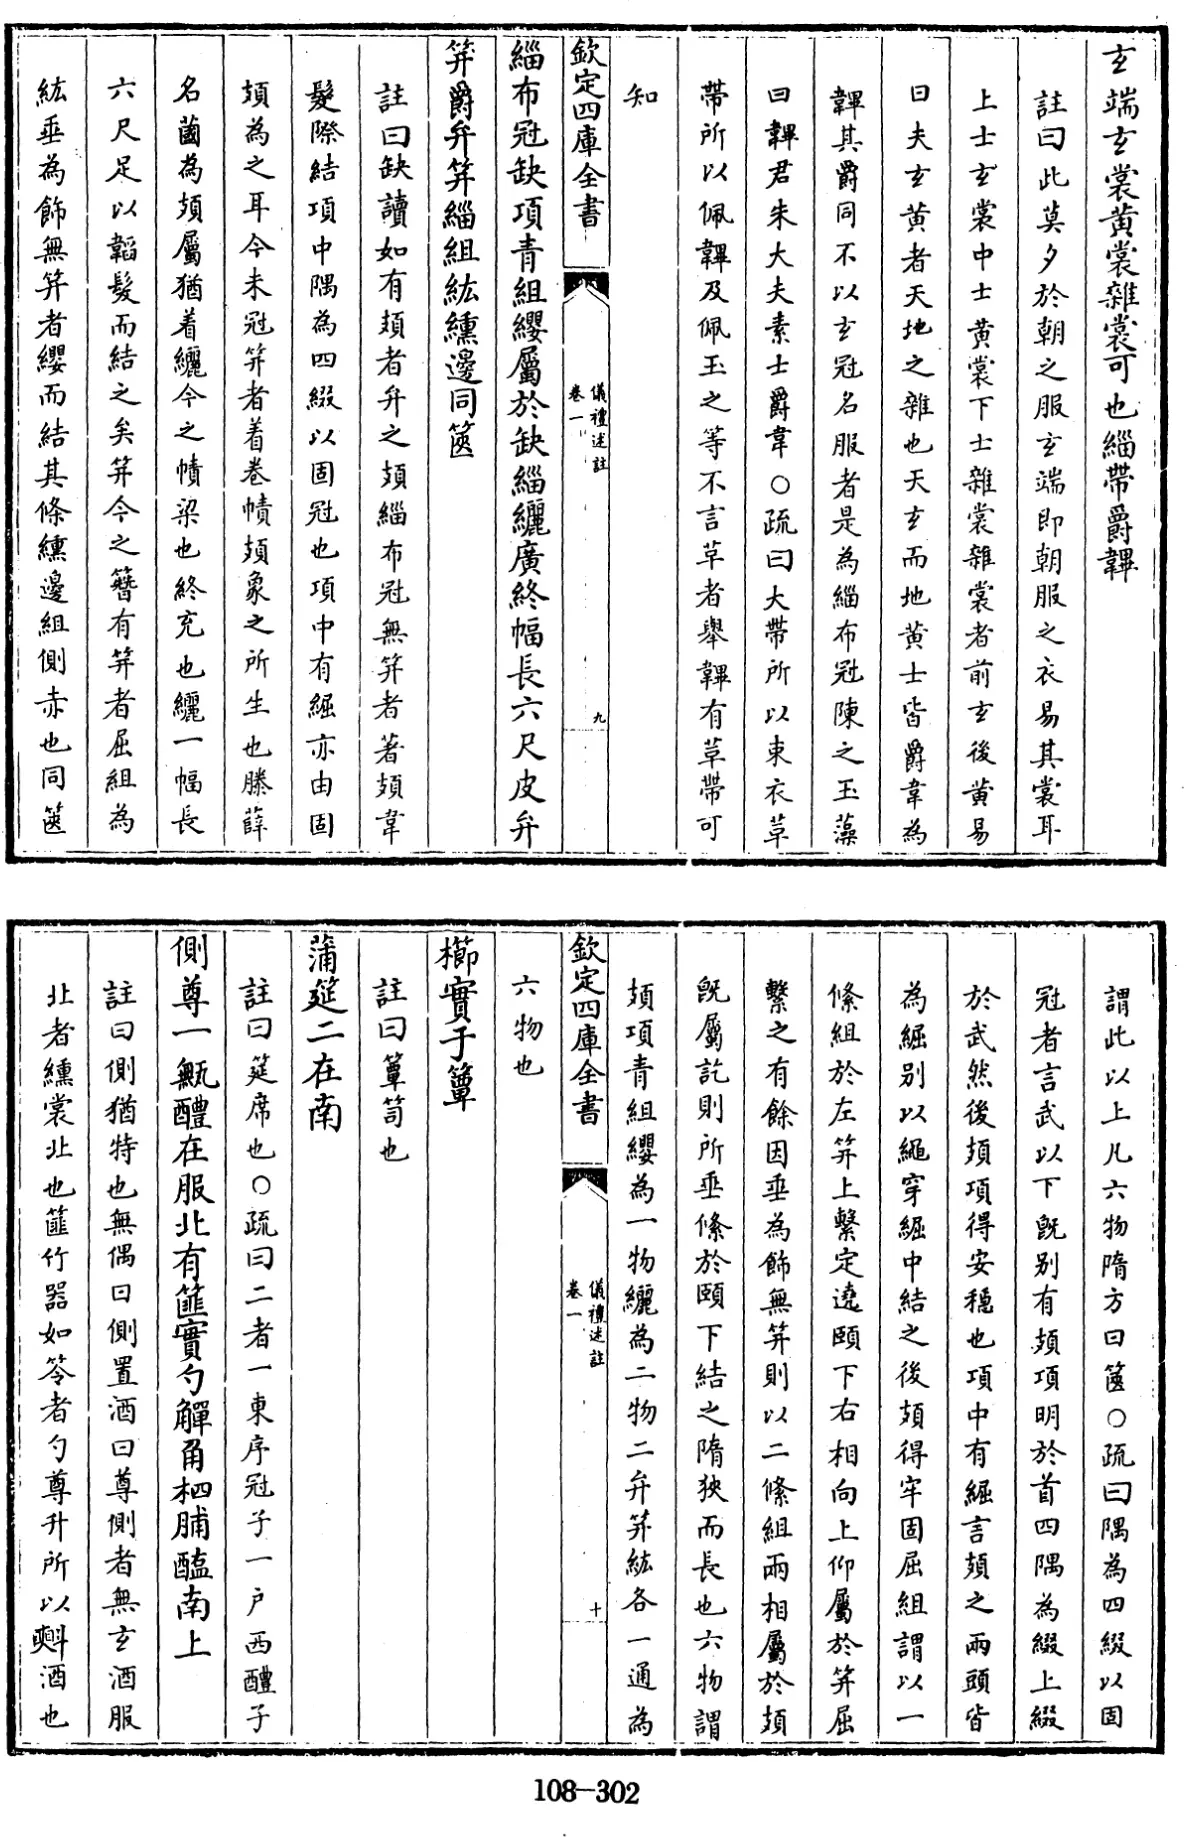 玄端玄裳黄裳雜裳可也緇帶爵韠
註曰此莫夕於朝之服玄端即朝服之衣易其裳耳
上士玄裳中士黄裳下士雜裳雜裳者前玄後黄易
曰夫玄黄者天地之雜也天玄而地黄士皆爵韋為
韠其爵同不以玄冠名服者是為緇布冠陳之玉藻
曰韠君朱大夫素士爵韋○疏曰大帶所以束衣革
帶所以佩韠及佩玉之等不言革者舉韠有革帶可
知
欽定四庫全書
儀禮述註
卷一
九
緇布冠缺項青組纓屬於缺緇纚廣終幅長六尺皮弁
笄爵弁笄緇組紘纁邊同篋
註曰缺讀如有頍者弁之頍緇布冠無笄者著頍韋
髮際結項中隅為四綴以固冠也項中有𦃓亦由固
頍為之耳今未冠笄者着卷幘頍象之所生也滕薛
名蔮為頍屬猶着纚今之幘梁也終充也纚一幅長
六尺足以韜髮而結之矣笄今之簪有笄者屈組為
紘垂為飾無笄者纓而結其絛纁邊組側赤也同篋
謂此以上凡六物隋方曰篋○疏曰隅為四綴以固
冠者言武以下既别有頍項明於首四隅為綴上綴
於武然後頍項得安穩也項中有𦃓言頍之兩頭皆
為𦃓别以繩穿𦃓中結之後頍得牢固屈組謂以一
絛組於左笄上繫定遶頤下右相向上仰屬於笄屈
繫之有餘因垂為飾無笄則以二絛組兩相屬於頍
既屬訖則所垂絛於頤下結之隋狹而長也六物謂
頍項青組纓為一物纚為二物二弁笄紘各一通為
欽定四庫全書
儀禮述註
卷一
十
六物也
櫛實于簞
註曰簞笥也
蒲筵二在南
註曰筵席也○疏曰二者一東序冠子一户西醴子
側尊一甒醴在服北有篚實勺觶角柶脯醢南上
註曰側猶特也無偶曰側置酒曰尊側者無玄酒服
北者纁裳北也篚竹器如笭者勺尊升所以㪺酒也
108-302